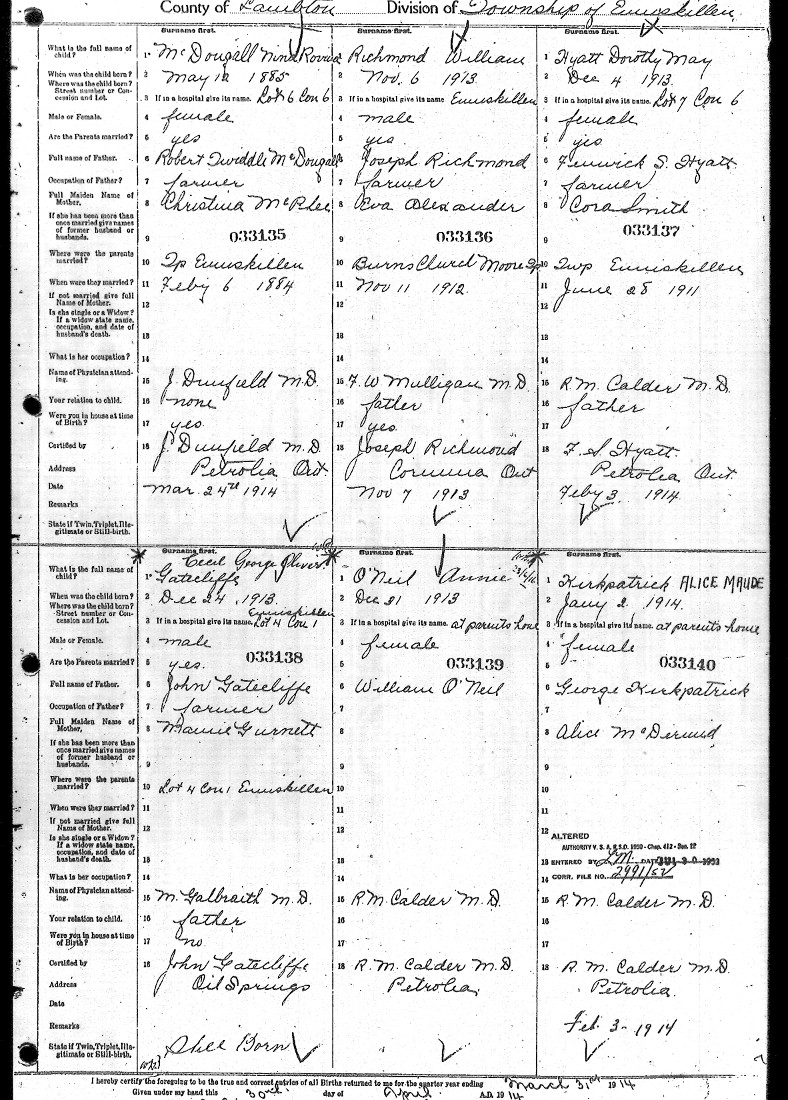 County of Lambton Division of Township of Enniskillen
Surname first. Surname first. Surname first.
What is the full name of child? 1 McDougall Nina 1 Richmond William 1 Hyatt Dorothy May
When was the child born? 2 May 12 1885 2 Nov. 6 1913 2 Dec 4 1913
Where was the child born? Street number or Concession and Lot. 3 If in a hospital give its name. Lot 6 Con 6 3 If in a hospital give its name Enniskillen 3 If in a hospital give its name. Lot 7 Con 6
Male or Female. 4 female 4 male 4 female
Are the Parents married? 5 yes 5 yes 5 yes
Full name of Father. 6 Robert Tweddle McDougall 6 Joseph Richmond 6 Fenwick S. Hyatt
Occupation of Father? 7 farmer 7 farmer 7 farmer
Full Maiden Name of Mother. 8 Christina McPhee 8 Eva Alexander 8 Cora Smith
If she has been more than once married give names of former husband or husbands. 9 033135 9 033136 9 033137
Where were the parents married? 10 Tp Enniskillen 10 Burns Church Moore Tp 10 Twp Enniskillen
When were they married? 11 Feby 6 1884 11 Nov 11 1912 11 June 28 1911
If not married give full Name of Mother. 12 12 12
Is she single or a Widow? If a widow state name, occupation, and date of husband's death. 13 13 13
What is her occupation? 14 14 14
Name of Physician attending. 15 J. Dunfield M.D. 15 F. W Mulligan M.D. 15 R.M. Calder M.D
Your relation to child. 16 none 16 father 16 father
Were you in house at time of Birth? 17 yes 17 yes 17
Certified by 18 J. Dunfield M.D 18 Joseph Richmond 18 F. S. Hyatt
Address Petrolia Ont. Corunna Ont Petrolia Ont.
Date Mar. 24th 1914 Nov 7 1913 Feby 3 1914
Remarks
State if Twin, Triplet, Illegitimate or Still-birth.
Surname first. Surname first. Surname first.
What is the full name of child? 1 Gatecliffe Cecil George Oliver 1 O'Neil Annie 1 Kirkpatrick ALICE MAUDE
When was the child born? 2 Dec 24 1913 2 Dec 21 1913 2 Jany 2, 1914
Where was the child born? Street number or Concession and Lot. 3 If in a hospital give its name. Enniskillen Lot 4 Con 1 3 If in a hospital give its name. at parents home 3 If in a hospital give its name. at parents home
Male or Female. 4 male 4 female 4 female
Are the Parents married? 5 yes. 033138 5 033139 5 033140
Full name of Father. 6 John Gatecliffe 6 William O'Neil 6 George Kirkpatrick
Occupation of Father? 7 farmer 7 7
Full Maiden Name of Mother, 8 Mamie Gurnett 8 8 Alice McDermid
If she has been more than once married give names of former husband or husbands. 9 9 9
Where were the parents married? 10 Lot 4 Con 1 Enniskillen 10 10
When were they married? 11 11 11
If not married give full Name of Mother. 12 12 12 ALTERED
AUTHORITY V. S. A., R.S.O. 1950 - Chap. 412 - Sec.
Is she single or a Widow? If a widow state name, occupation, and date of husband's death. 13 13 13 ENTERED BY L.M. DATE
What is her occupation? 14 14 14 CORR. FILE NO. 2991/52
Name of Physician attending. 15 M. Galbraith M.D. 15 R.M. Calder M.D. 15 R.M. Calder M.D.
Your relation to child. 16 father 16 16
Were you in house at time of Birth? 17 no 17 17
Certified by 18 John Gatecliffe 18 R.M. Calder M.D. 18 R.M. Calder M.D.
Address Oil Springs Petrolia, Petrolia.
Date
Remarks Feb. 3 - 1914
State if Twin, Triplet, Illegitimate or Still-birth. Still Born
I hereby certify the foregoing to be the true and correct entries of all Births returned to me for the quarter year ending March 31st 1914
Given under my hand this 30th day of April A.D. 1914